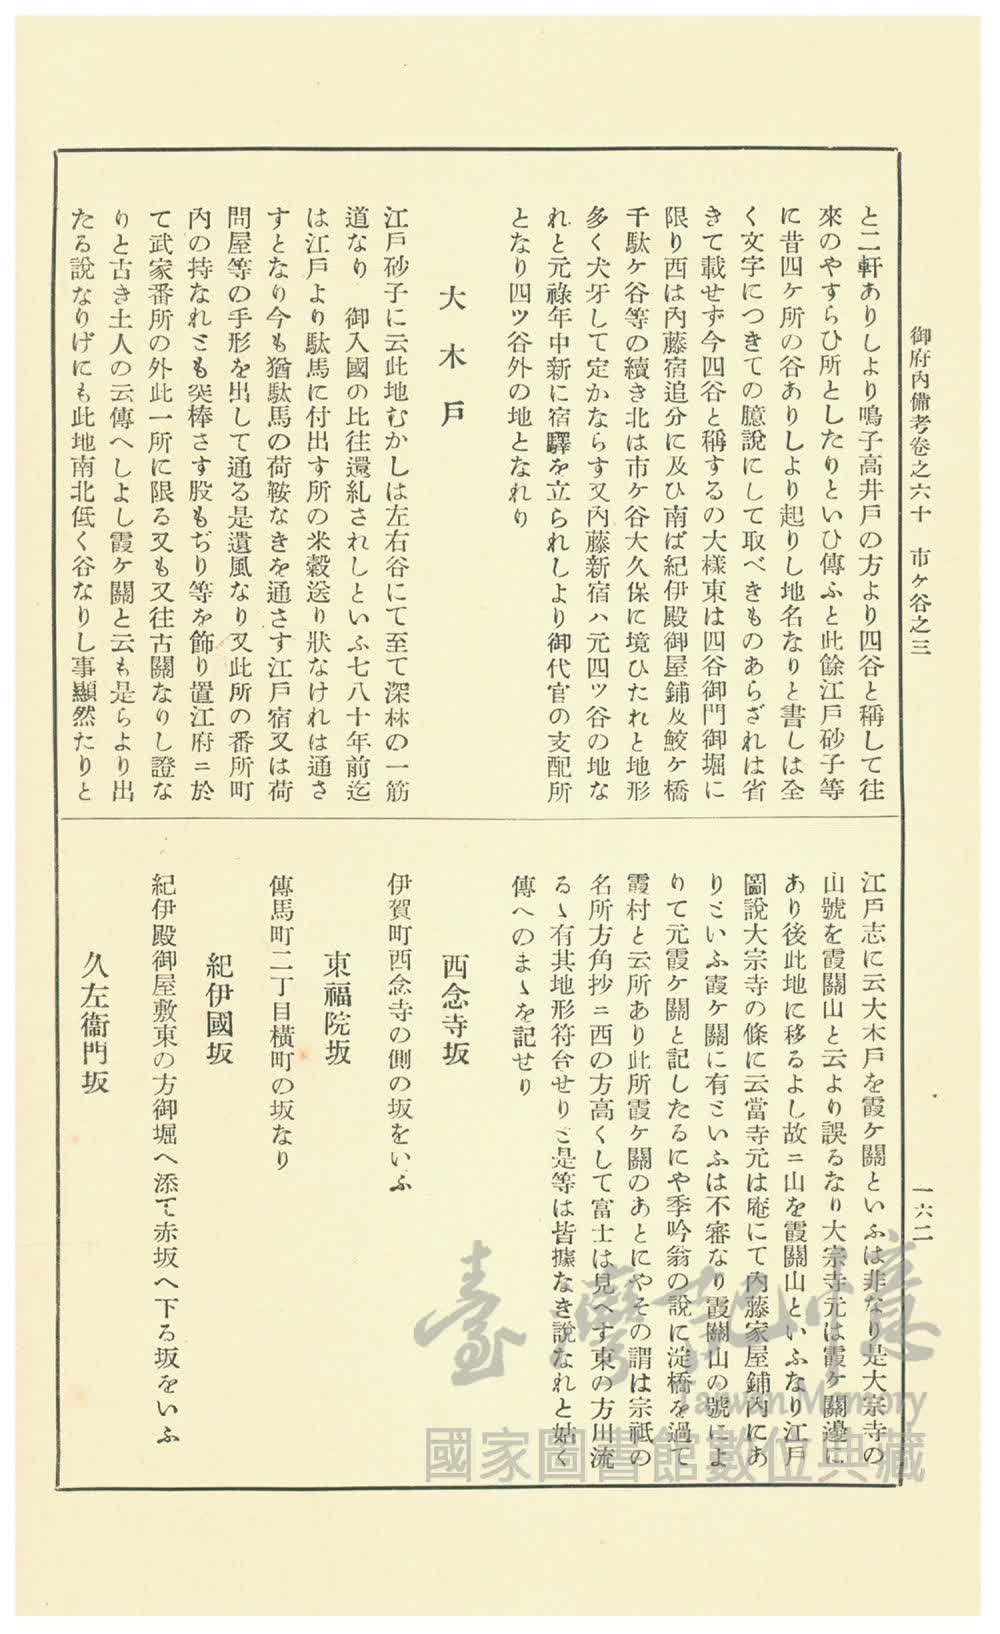 御府內備考卷之六十　市ケ谷之三
一六二
と二軒ありしより鳴子高井戶の方より四谷と稱して往
來のやすらひ所としたりといひ傳ふと此餘江戶砂子等
に昔四ケ所の谷ありしより起りし地名なりと書しは全
く文字につきての臆說にして取べきものあらざれは省
きて載せず今四谷と稱するの大樣東は四谷御門御堀に
限り西は內藤宿追分に及ひ南ば紀伊殿御屋鋪及鮫ケ橋
千駄ケ谷等の續き北は市ケ谷大久保に境ひたれと地形
多く犬牙して定かならす又內藤新宿ハ元四ツ谷の地な
れと元祿年中新に宿驛を立られしより御代官の支配所
となり四ツ谷外の地となれり
大木戶
江戶砂子に云此地むかしは左右谷にて至て深林の一筋
道なり　御入國の比往還糺されしといふ七八十年前迄
は江戶より駄馬に付出す所の米穀送り狀なけれは通さ
すとなり今も猶駄馬の荷鞍なきを通さす江戶宿又は荷
問屋等の手形を出して通る是遺風なり又此所の番所町
內の持なれども突棒さす股もぢり等を飾り置江府ニ於
て武家番所の外此一所に限る又も又往古關なりし證な
りと古き土人の云傳へしよし霞ケ關と云も是らより出
たる說なりげにも此地南北低く谷なりし事顯然たりと
江戶志に云大木戶を霞ケ關といふは非なり是大宗寺の
山號を霞關山と云より誤るなり大宗寺元は霞ケ關邊に
あり後此地に移るよし故ニ山を霞關山といふなり江戶
圖說大宗寺の條に云當寺元は庵にて內藤家屋鋪內にあ
りどいふ霞ケ關に有どいふは不審なり霞關山の號によ
りて元霞ケ關と記したるにや季吟翁の說に淀橋を過て
霞村と云所あり此所霞ケ關のあとにやその謂は宗祇の
名所方角抄ニ西の方高くして富士は見へす東の方川流
るゝ有其地形符合せりど是等は皆據なき說なれと姑く
傳へのまゝを記せり
西念寺坂
伊賀町西念寺の側の坂をいふ
東福院坂
傳馬町二丁目橫町の坂なり
紀伊國坂
紀伊殿御屋敷東の方御堀へ添て赤坂へ下る坂をいふ
久左衞門坂
臺灣記憶
Taiwan Memory
國家圖書館數位典藏